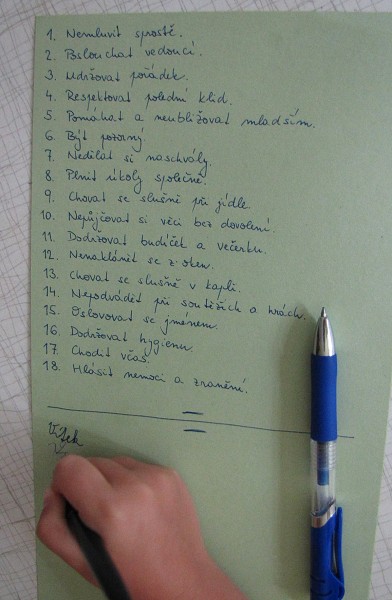 1. Nemluvit sprostě.
2. Poslouchat vedoucí.
3. Udržovat pořádek.
4. Respektovat polední klid.
5. Pomáhat a neubližovat mladším.
6. Být pozorný.
7. Nedělat si naschvály.
8. Plnit úkoly společně.
9. Chovat se slušně při jídle
10. Nepůjčovat si věci bez dovolení.
11. Dodržovat budíček a večerku.
12. Nenaklánět se z oken.
13. Chovat se slušně v kapli.
14. Nepodvádět při soutěžích a hrách.
15. Oslovovat se jménem.
16. Dodržovat hygienu.
17. Chodit včas.
18. Hlásit nemoci a zranění.